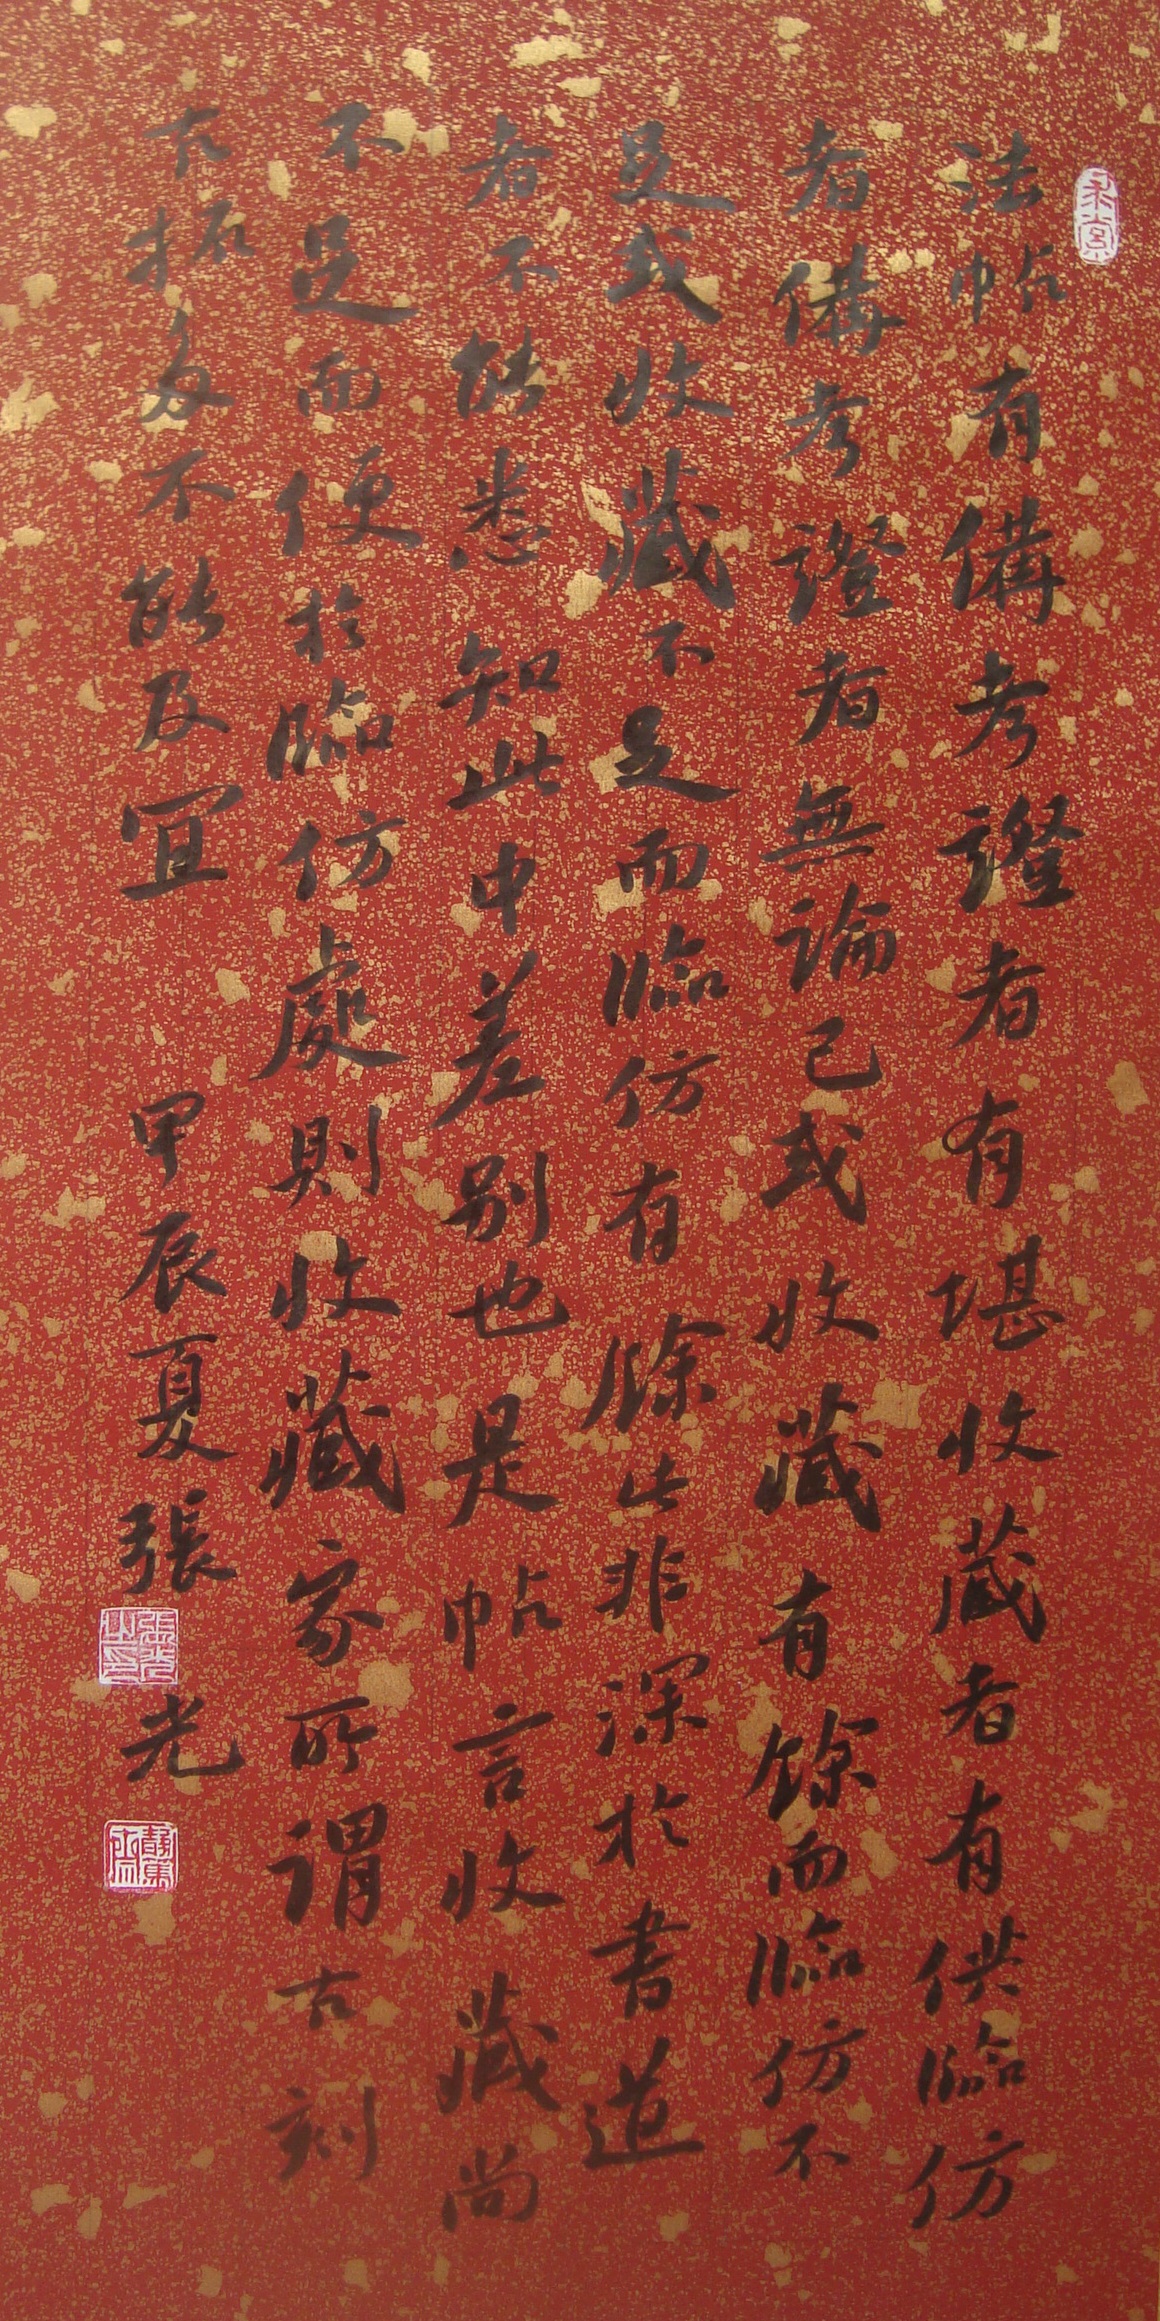 法帖有備考證者有堪收藏者有供臨仿
者備考證者無論已或收藏有餘而臨仿不
足或收藏不足而臨仿有餘此非深於書道
者不能悉知此中差別也是帖言收藏尚
不足而便於臨仿處則收藏家所謂古刻
古拓多不能及宜 甲辰夏張光